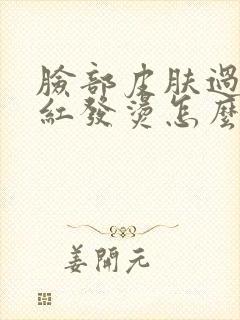 臉部皮肤過
紅發燙怎麼
姜開元